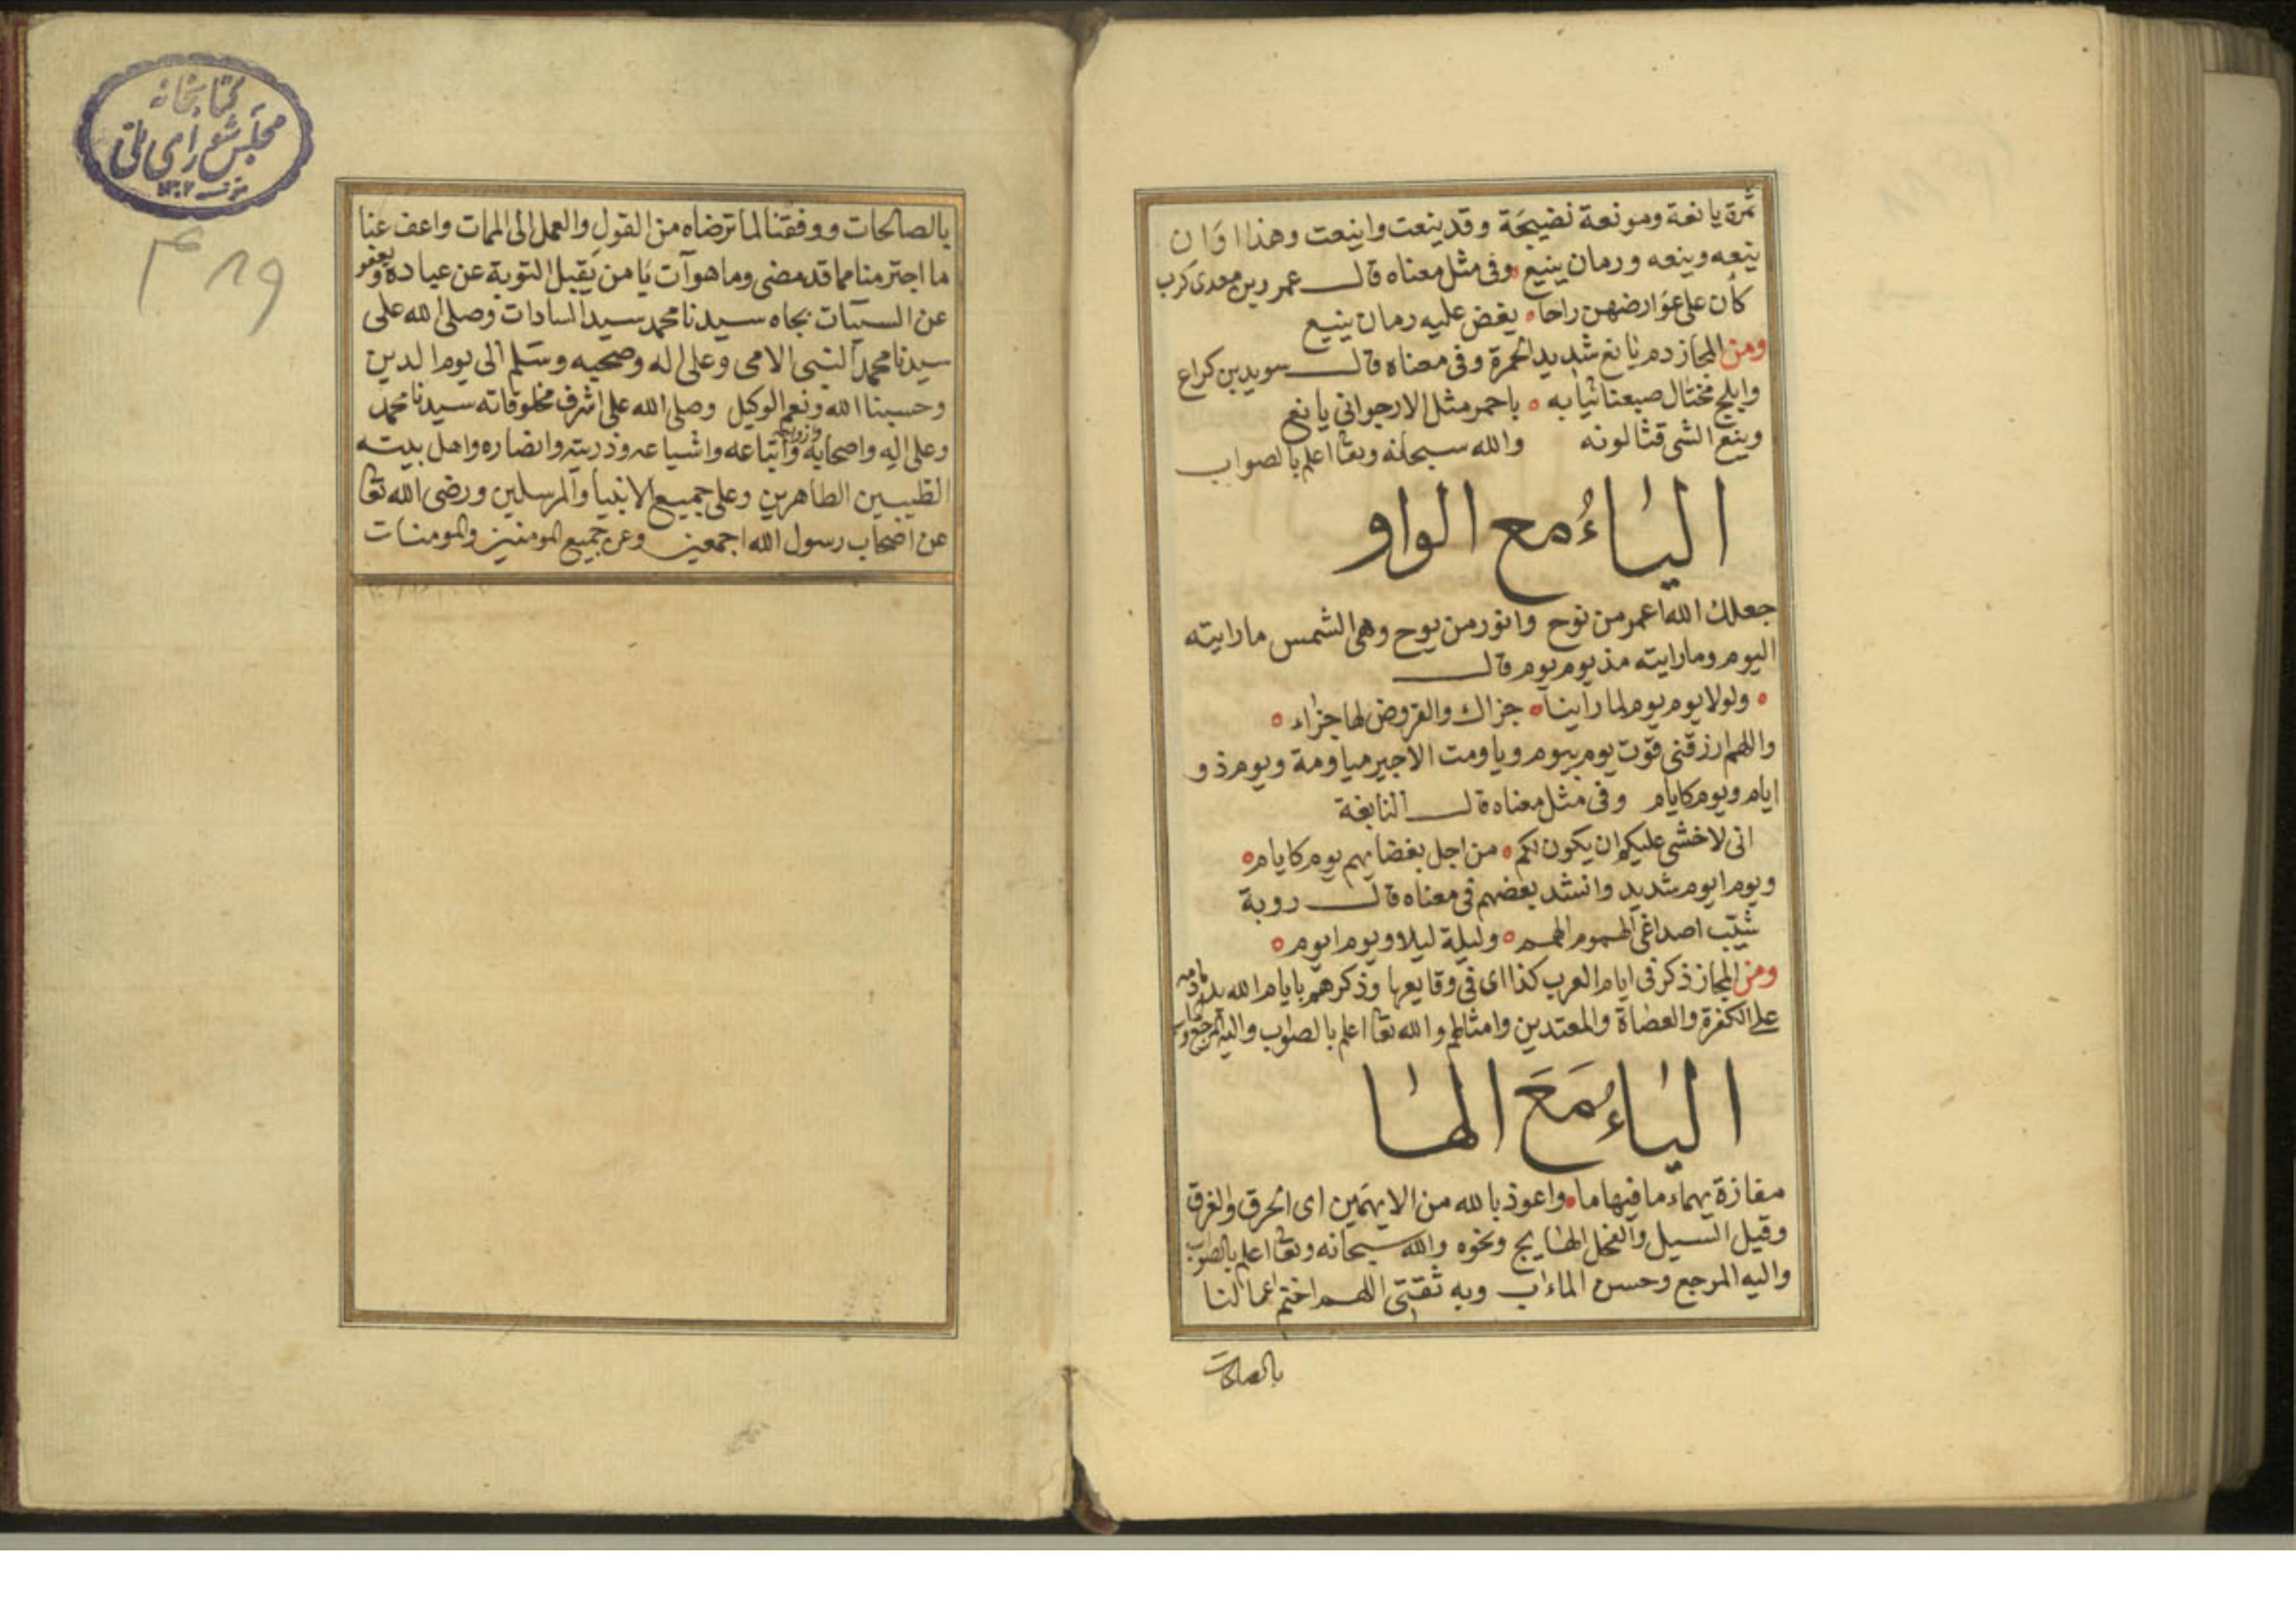 ثمرة يانعة ومونعة نضيجة وقد ينعت واينعت وهذا اوان
ينعه وينعه ورمان ينيع وفى مثل معناه قال عمرو بن معدى كرب
كأن على عوارضهن راحا يفض عليه رمان ينيع
ومن المجاز دم يانع شديد الحمرة وفى معناه قال سويد بن كراع
وابلج مختال صبغنا ثيابه باحمر مثل الارجوانى يانع
وينع الشى قثا لونه والله سبحانه وتعا اعلم بالصواب
الياء مع الواو
جعلك الله اعمر من نوح وانور من يوح وهى الشمس ما رايته
اليوم وما رايته مذ يوم يوم قال
ولولا يوم يوم لما راينا جزاك والقروض لها جزاء
واللهم ارزقنى قوت يوم بيوم وياومت الاجير مياومة ويوم ذو
ايام ويوم كايام وفى مثل معناه قال النابغة
انى لاخشى عليكم ان يكون لكم من اجل بغضايهم يوم كايام
ويوم ايوم شديد وانشد بعضهم فى معناه قال روبة
شيّب اصداغى الهموم الهمم وليلة ليلا ويوم ايوم
ومن المجاز ذكر فى ايام العرب كذا اى فى وقايعها وذكرهم بايام الله
على الكفرة والعصاة والمعتدين وامثالهم والله تعا اعلم بالصواب واليه المرجع
الياء مَعَ الها
مفازة يهماء ما فيها ما واعوذ بالله من الايهمين اى الحرق والغرق
وقيل السيل والفحل الهايج ونحوه والله سبحانه وتعا اعلم بالصواب
واليه المرجع وحسن الماءاب وبه ثقتى اللهم اختم اعمالنا
بالصالحات
كتابخانه
مجلس شوراى ملى
٤١٩
بالصالحات ووفقنا لما ترضاه من القول والعمل الى الممات واعف عنا
ما اجترمنا مما قد مضى وما هو آت يا من يقبل التوبة عن عباده ويعفو
عن السيئات بجاه سيدنا محمد سيد السادات وصلى الله على
سيدنا محمد النبى الامى وعلى اله وصحبه وسلم الى يوم الدين
وحسبنا الله ونعم الوكيل وصلى الله على اشرف مخلوقاته سيدنا محمد
وعلى اله واصحابه وازواجه واتباعه واشياعه وذريته وانصاره واهل بيته
الطيبين الطاهرين وعلى جميع الانبيا والمرسلين ورضى الله تعا
عن اصحاب رسول الله اجمعين وعن جميع المومنين والمومنات